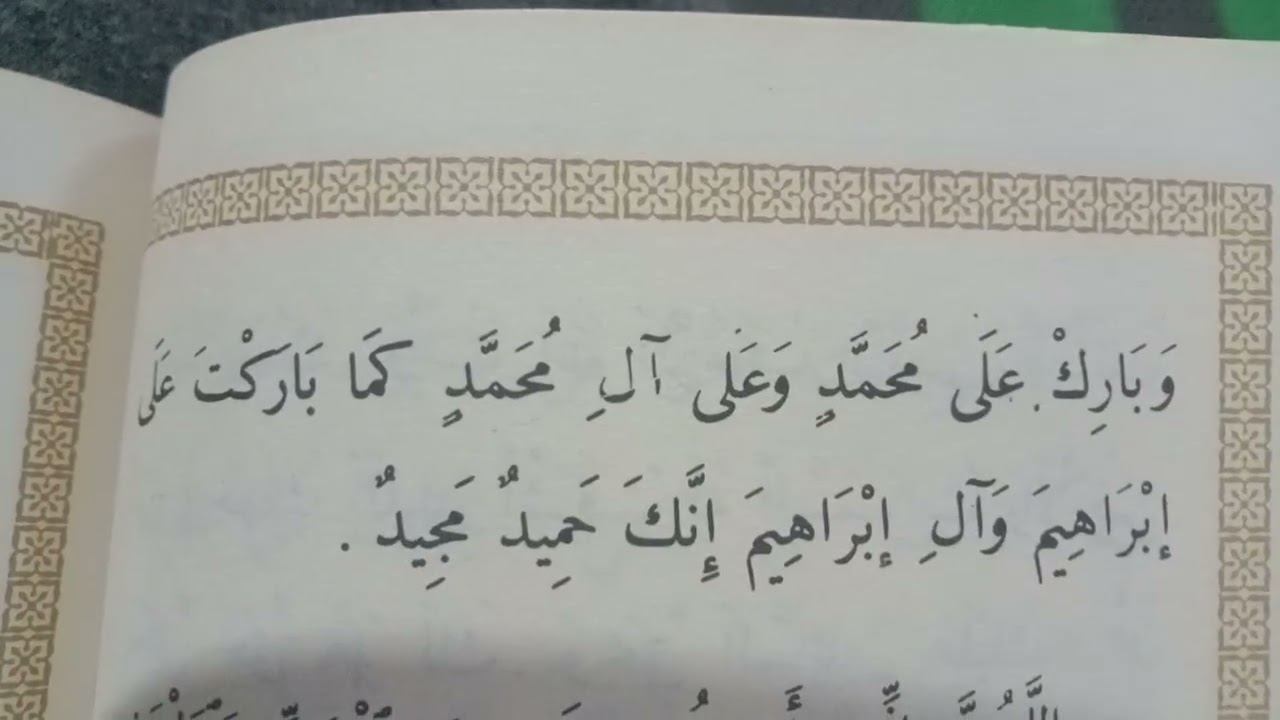 وَبَارِكْ عَلَى مُحَمَّدٍ وَعَلَى آلِ مُحَمَّدٍ كَمَا بَارَكْتَ عَلَى
إِبْرَاهِيمَ وَآلِ إِبْرَاهِيمَ إِنَّكَ حَمِيدٌ مَجِيدٌ .